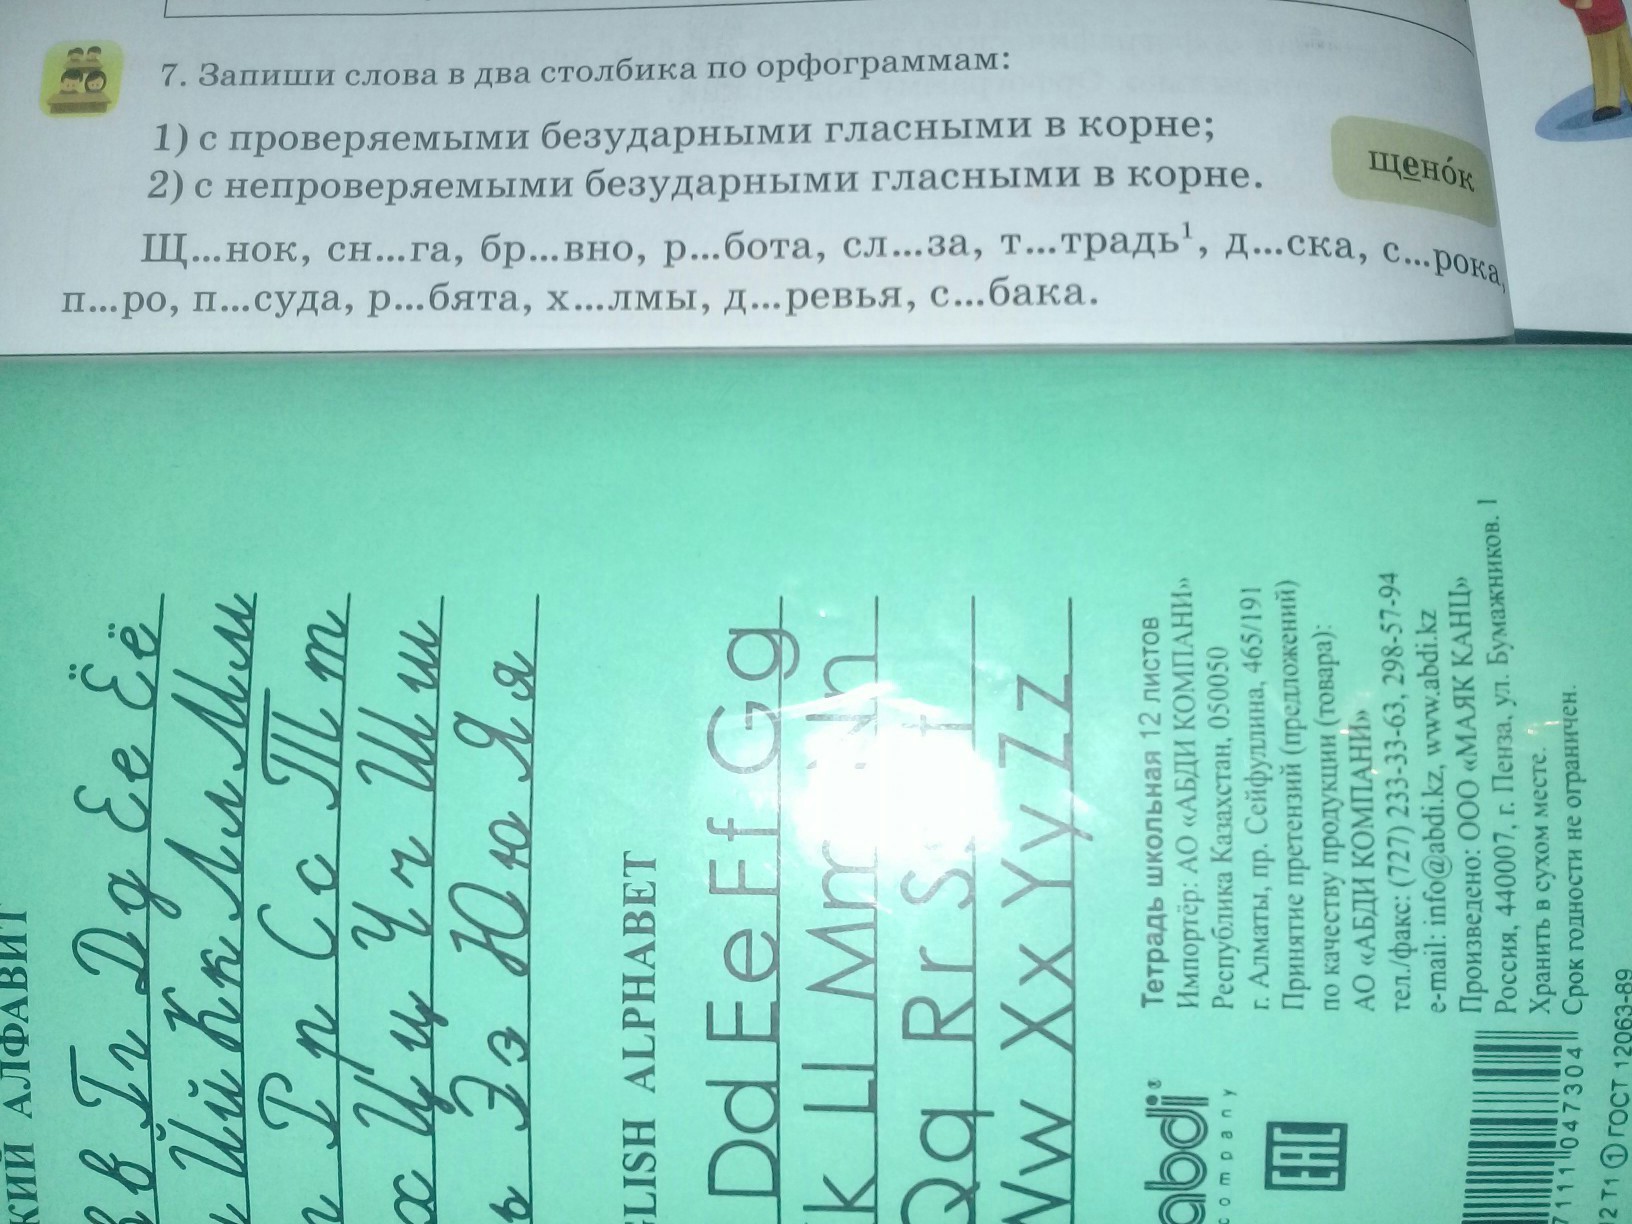 7. Запиши слова в два столбика по орфограммам:
1) с проверяемыми безударными гласными в корне;
2) с непроверяемыми безударными гласными в корне.
щено́к
Щ...нок, сн...га, бр...вно, р...бота, сл...за, т...традь¹, д...ска, с...рока,
п...ро, п...суда, р...бята, х...лмы, д...ревья, с...бака.
КИЙ АЛФАВИТ
в Гг Дд Ее Ёё
Йй Кк Лл Мм
Рр Сс Тт
х Цц Чч Шш
ь Ээ Юю Яя
GLISH ALPHABET
Dd Ee Ff Gg
k Ll Mm Nn
Qq Rr S t
Ww Xx Yy Zz
Тетрадь школьная 12 листов
Импортёр: АО «АБДИ КОМПАНИ»
Республика Казахстан, 050050
г. Алматы, пр. Сейфуллина, 465/191
Принятие претензий (предложений)
по качеству продукции (товара):
АО «АБДИ КОМПАНИ»
тел./факс: (727) 233-33-63, 298-57-94
e-mail: info@abdi.kz, www.abdi.kz
Произведено: ООО «МАЯК КАНЦ»
Россия, 440007, г. Пенза, ул. Бумажников. 1
Хранить в сухом месте.
Срок годности не ограничен.
abdi®
company
EAC
71111 047304
2 Т1 ① ГОСТ 12063-89